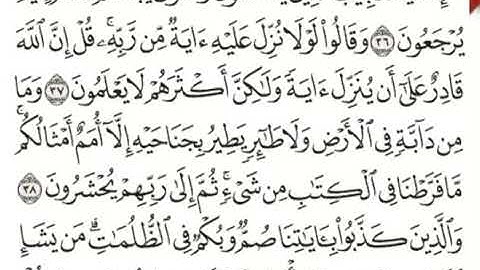 يُرْجَعُونَ ٣٦ وَقَالُوا۟ لَوْلَا نُزِّلَ عَلَيْهِ ءَايَةٌ مِّن رَّبِّهِۦ ۚ قُلْ إِنَّ ٱللَّهَ
قَادِرٌ عَلَىٰٓ أَن يُنَزِّلَ ءَايَةً وَلَٰكِنَّ أَكْثَرَهُمْ لَا يَعْلَمُونَ ٣٧ وَمَا
مِن دَآبَّةٍ فِى ٱلْأَرْضِ وَلَا طَٰٓئِرٍ يَطِيرُ بِجَنَاحَيْهِ إِلَّآ أُمَمٌ أَمْثَالُكُم ۚ
مَّا فَرَّطْنَا فِى ٱلْكِتَٰبِ مِن شَىْءٍ ۚ ثُمَّ إِلَىٰ رَبِّهِمْ يُحْشَرُونَ ٣٨
وَٱلَّذِينَ كَذَّبُوا۟ بِـَٔايَٰتِنَا صُمٌّ وَبُكْمٌ فِى ٱلظُّلُمَٰتِ ۗ مَن يَشَإِ